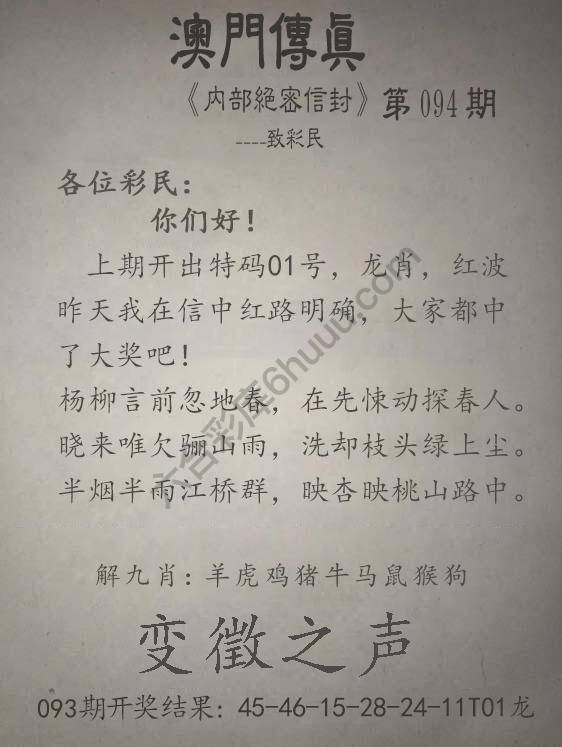 澳門傳眞
《内部絕密信封》第094期
----致彩民
各位彩民：
你们好！
上期开出特码01号，龙肖，红波
昨天我在信中红路明确，大家都中
了大奖吧！
杨柳言前忽地春，在先悚动探春人。
晓来唯欠骊山雨，洗却枝头绿上尘。
半烟半雨江桥群，映杏映桃山路中。
六合彩库6huuu.com
解九肖：羊虎鸡猪牛马鼠猴狗
变徵之声
093期开奖结果：45-46-15-28-24-11T01龙